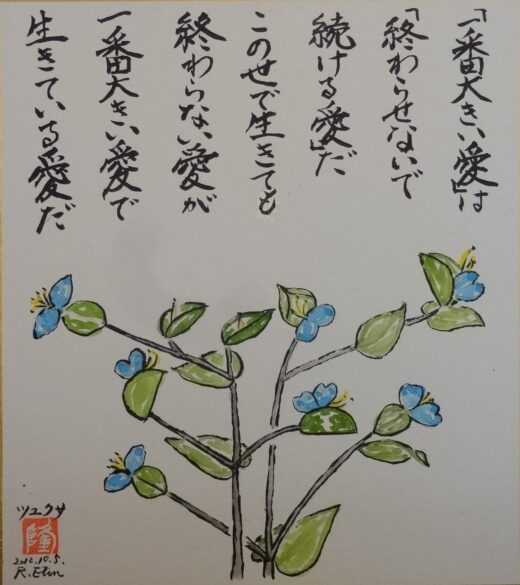 「一番大きい愛」は
「終わらせないで
続ける愛」だ
この世で生きても
終わらない愛が
一番大きい愛で
生きている愛だ
ツユクサ
隆
2012.10.5.
R.Eton